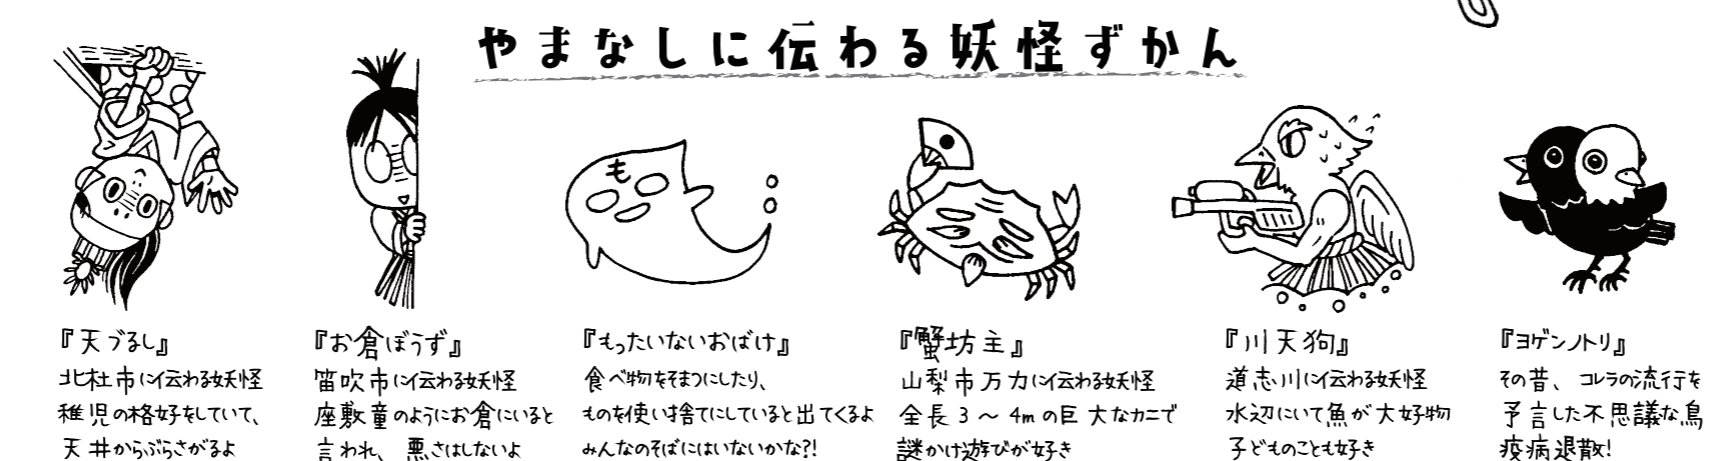 やまなしに伝わる妖怪ずかん
も
『天づるし』
北杜市に伝わる妖怪
稚児の格好をしていて、
天井からぶらさがるよ
『お倉ぼうず』
笛吹市に伝わる妖怪
座敷童のようにお倉にいると
言われ、悪さはしないよ
『もったいないおばけ』
食べ物をそまつにしたり、
ものを使い捨てにしていると出てくるよ
みんなのそばにはいないかな?!
『蟹坊主』
山梨市万力に伝わる妖怪
全長3～4mの巨大なカニで
謎かけ遊びが好き
『川天狗』
道志川に伝わる妖怪
水辺にいて魚が大好物
子どものことも好き
『ヨゲンノトリ』
その昔、コレラの流行を
予言した不思議な鳥
疫病退散!